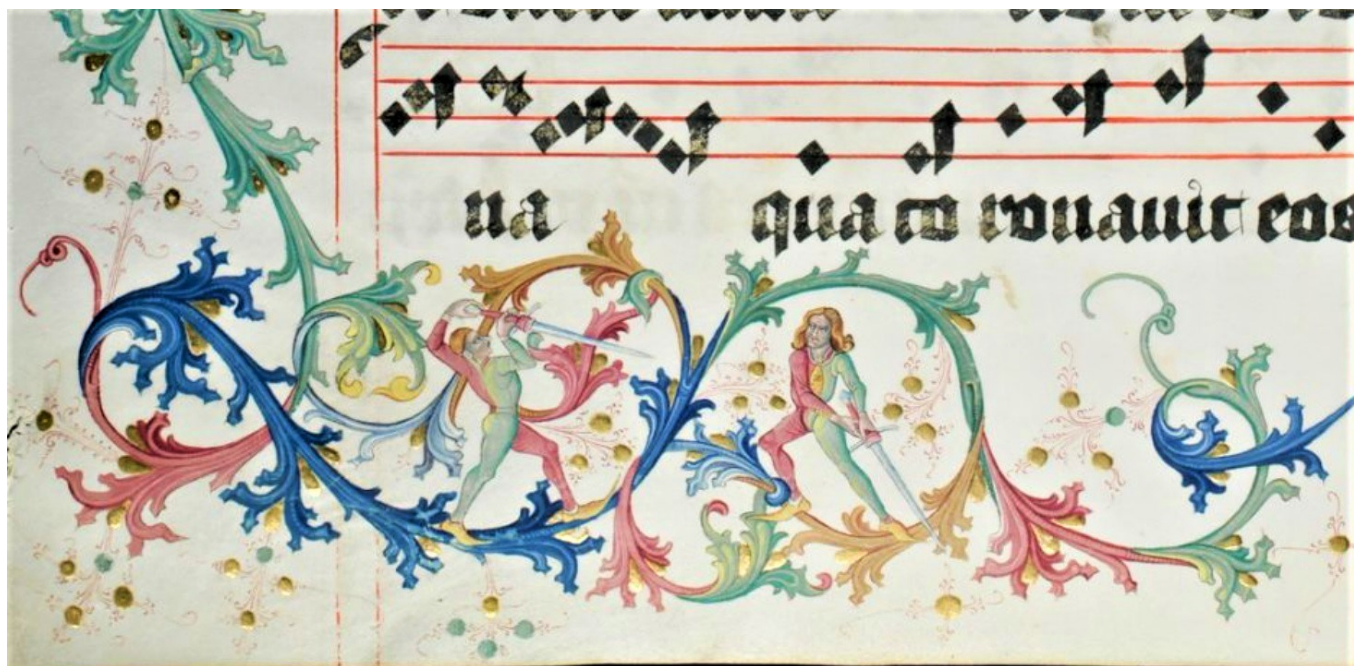 na qua co ronauit eos